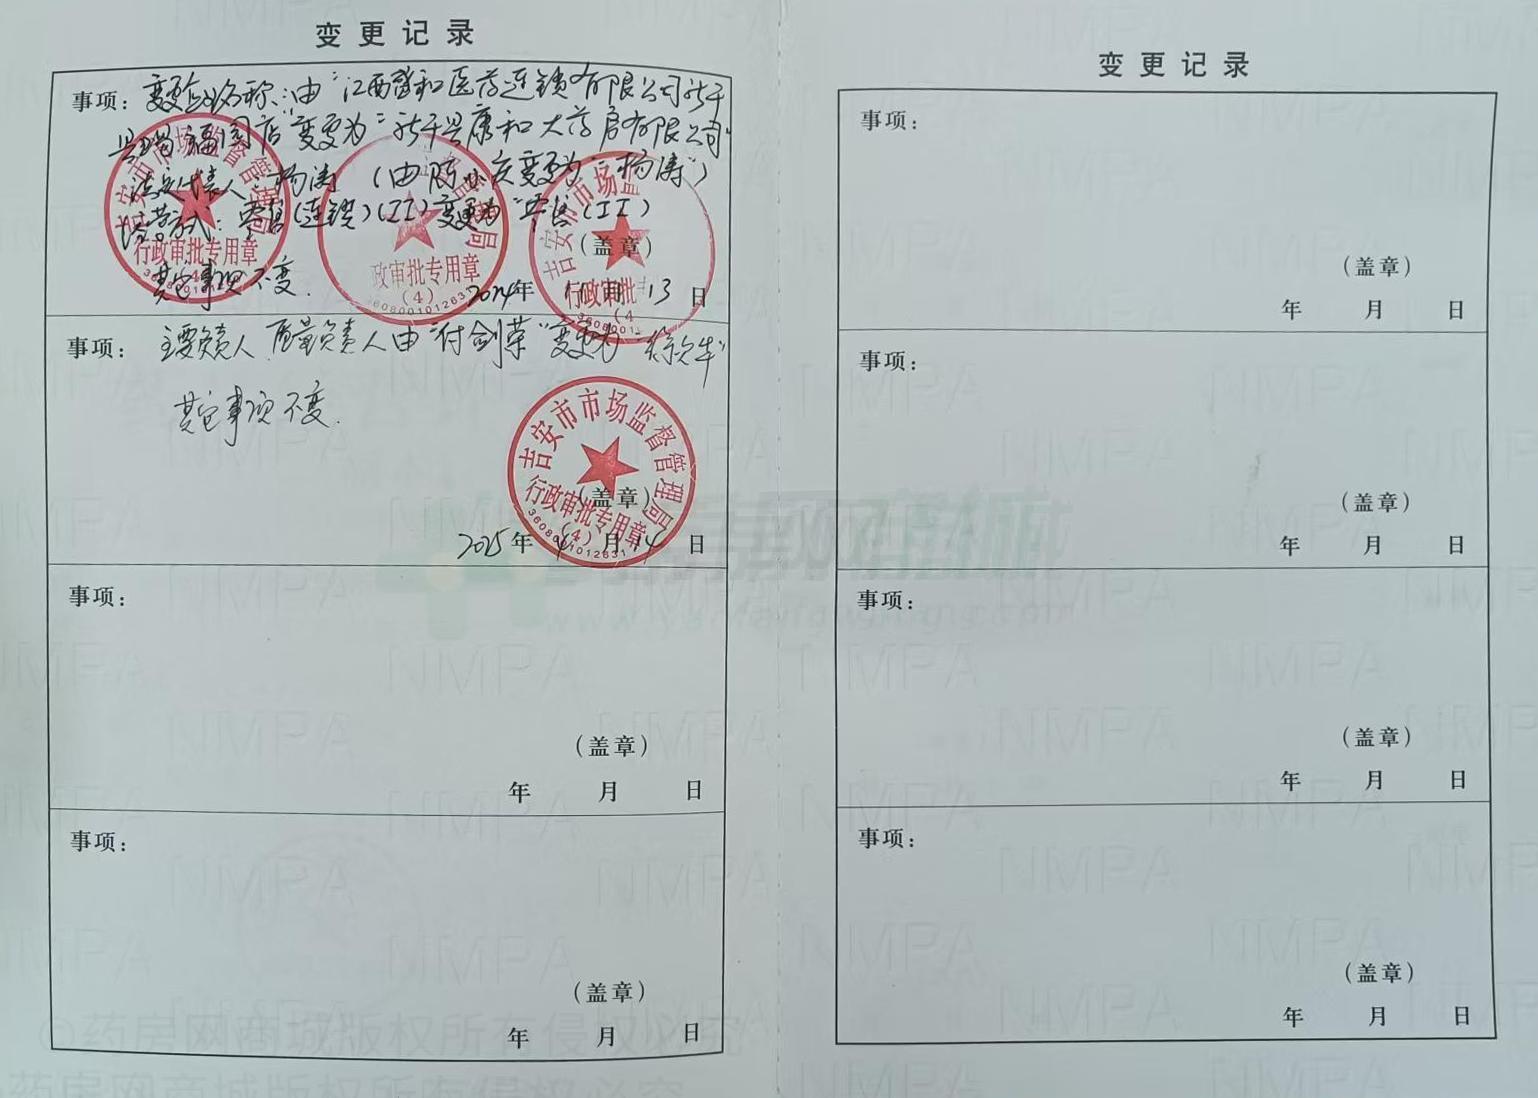 变更记录
事项：变更企业名称：由“江西登和医药连锁有限公司新干
县福园店”变更为“新干县康和大药房有限公司”
法定代表人：杨涛（由 变更为“杨涛”）
经营方式：零售（连锁）（II）变更为“零售（II）
（盖章）
其它事项不变．
2024年11月13日
事项：主要负责人、质量负责人由“付剑荣”变更为“
其它事项不变．
（盖章）
2025年4月14日
事项：
（盖章）
年 月 日
事项：
（盖章）
年 月 日
吉安市市场监督管理局
行政审批专用章
（4）
3608001012831
监督管理局
政审批专用章
（4）
吉安市市场监
行政审批
吉安市市场监督管理局
行政审批专用章
（4）
3608001012831
变更记录
事项：
（盖章）
年 月 日
事项：
（盖章）
年 月 日
事项：
（盖章）
年 月 日
事项：
（盖章）
年 月 日
NMPA
药房网商城
www.yaofangwang.com
©药房网商城版权所有侵权必究
药房网商城版权所有侵权必究